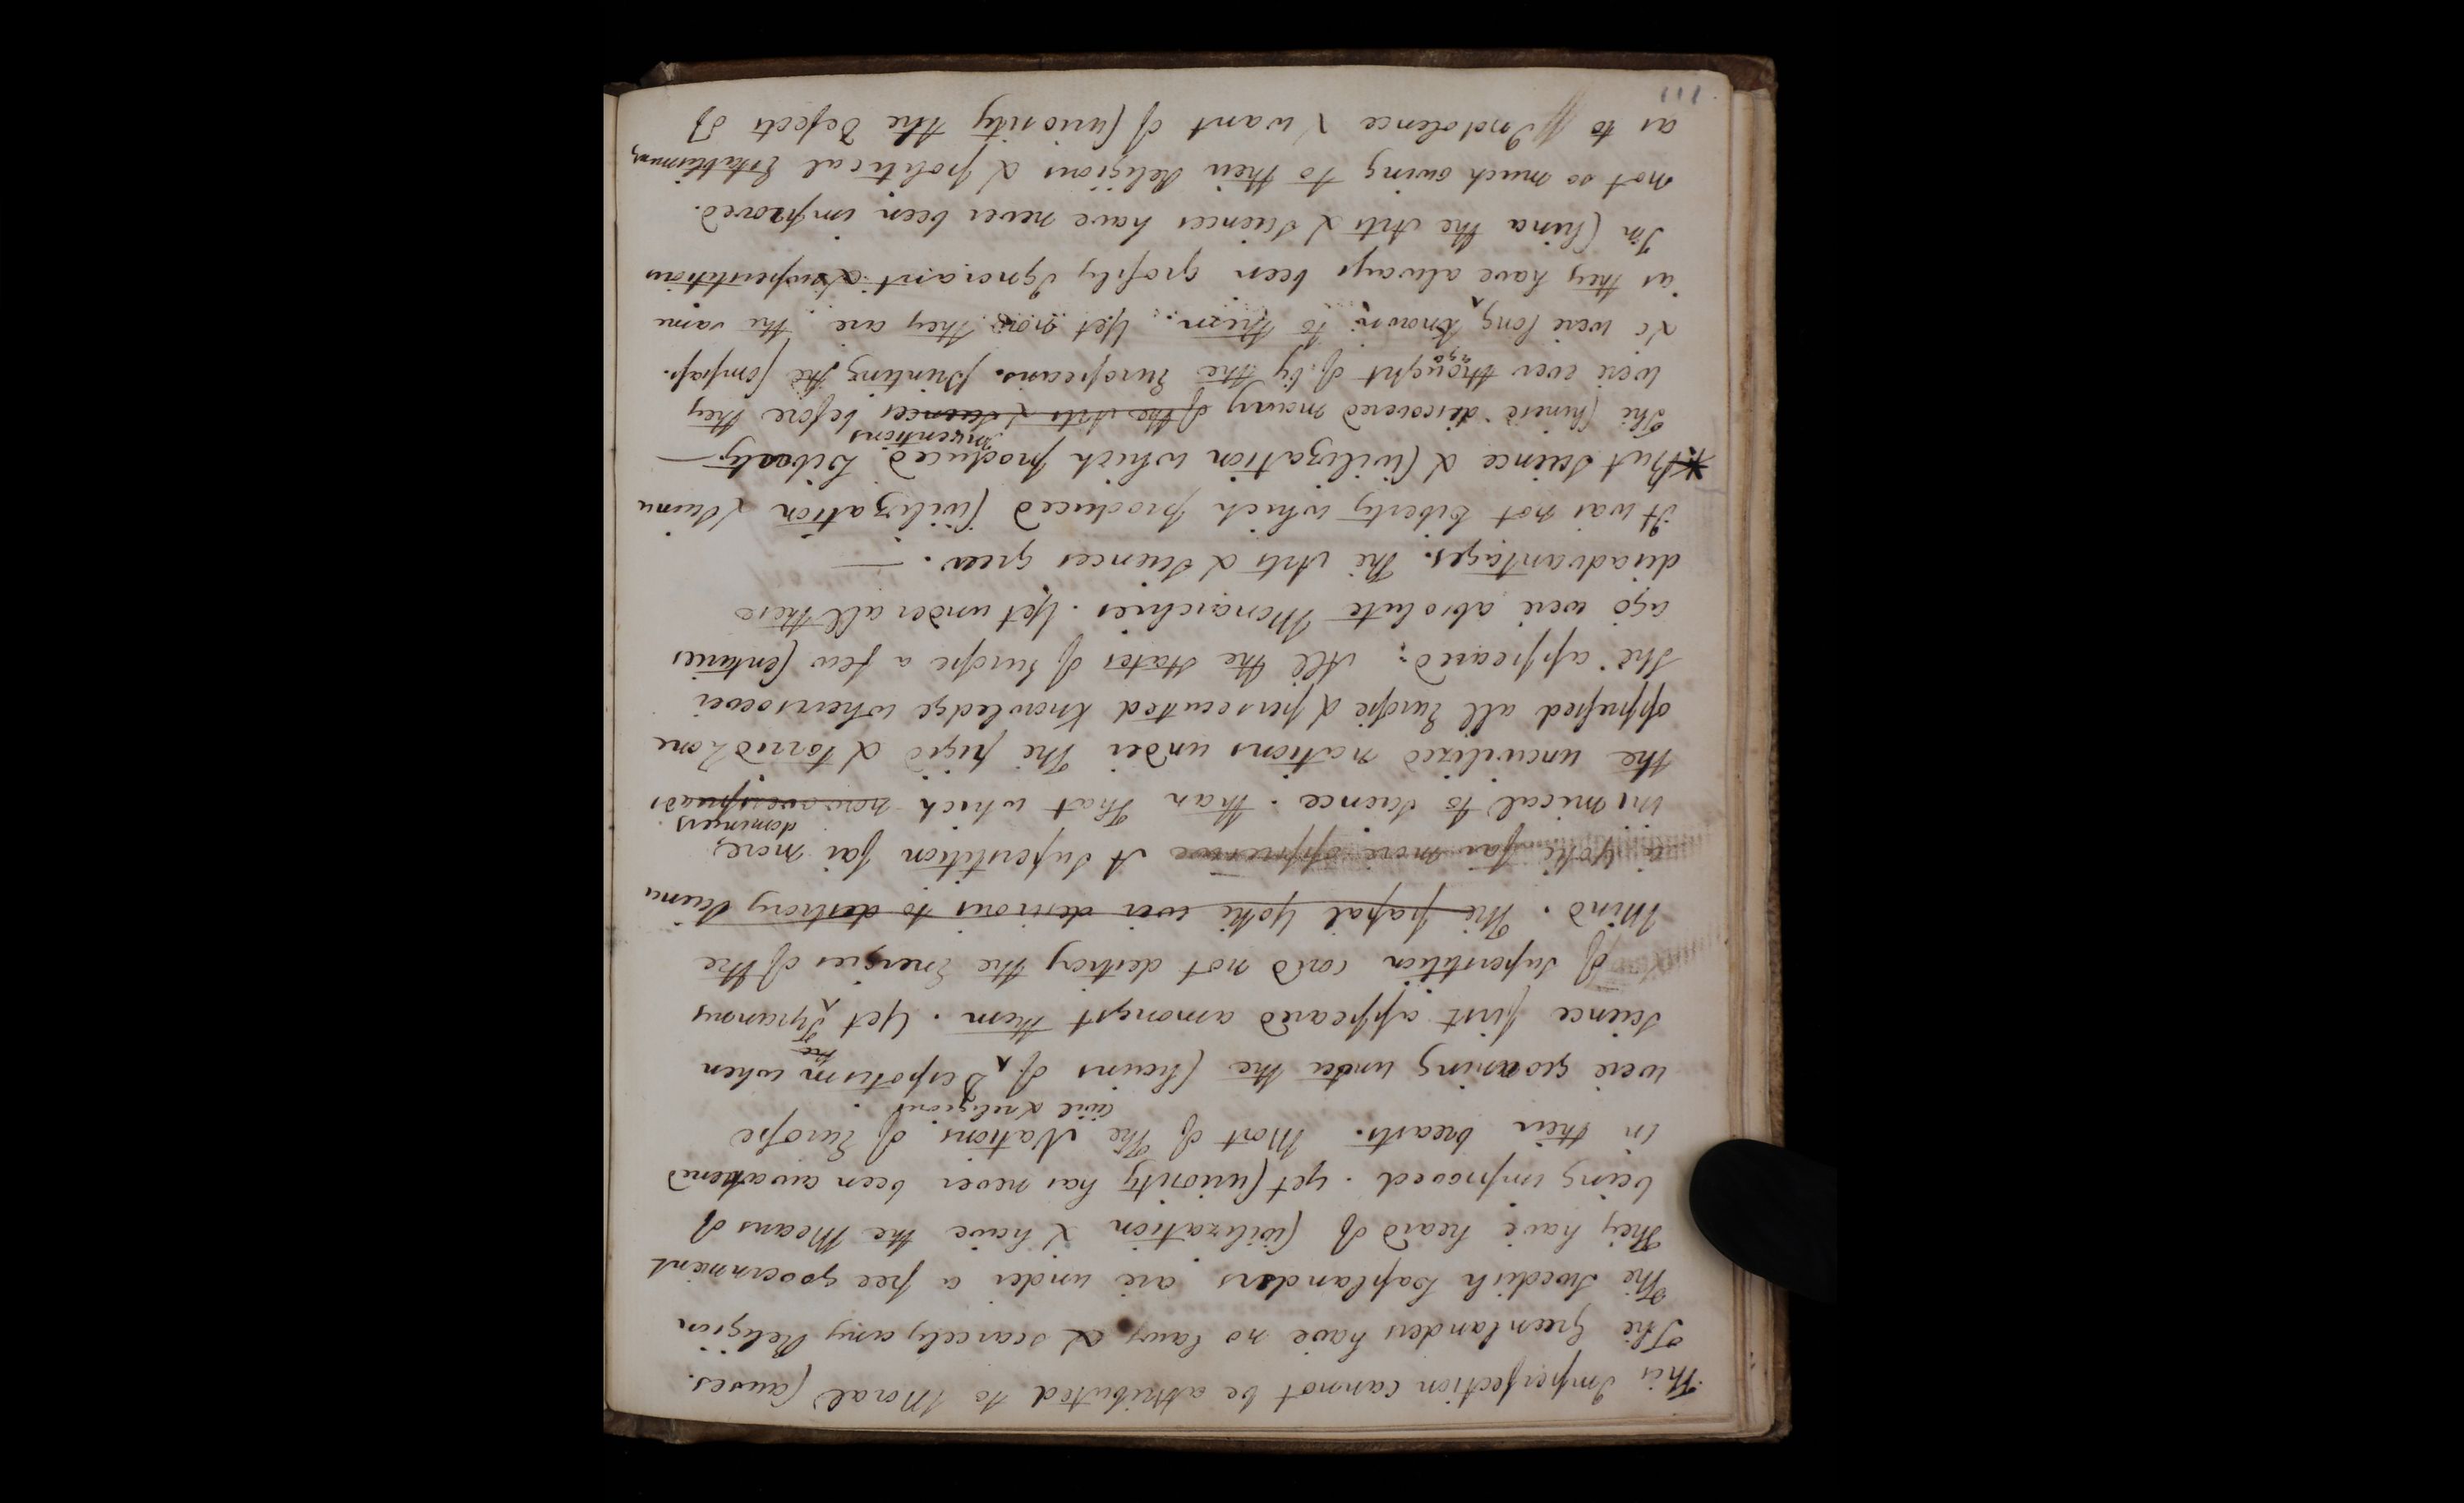 This Imperfection cannot be attributed to Moral Causes.
The Greenlanders have no laws & scarcely any Religion
The Swedish Laplanders are under a free government
They have heard of Civilization & have the Means of
being improved. yet Curiosity has never been awakened
in their breasts. Most of The Nations of Europe
civil & religious
were groaning under the Chains of Despotism when
Science first appeared amongst them. Yet The Tyranny
of Superstition could not destroy the Energies of the
Mind. The papal Yoke ever desirous to destroy Science
a Yoke far more oppressive A Superstition far more
domineers
inimical to science than That which now overspreads
the uncivilized nations under The frigid & torrid Zone
oppressed all Europe & persecuted knowledge wheresoever
She appeared: All the states of Europe a few Centuries
ago were absolute Monarchies. Yet under all these
disadvantages. The Arts & Sciences grew. —
It was not Liberty which produced Civilization & Science
But Science & Civilization which produced Liberty —
inventions
The Chinese discovered many of the Arts & Sciences before they
were ever thought of by the Europeans. Printing the Compass.
&c were long ago known to them. Yet now they are the same
as they have always been grossly Ignorant & superstitious
In China the Arts & Sciences have never been improved.
not so much owing to their Religious & political Establishments
as to Indolence & want of Curiosity the Defects of
111